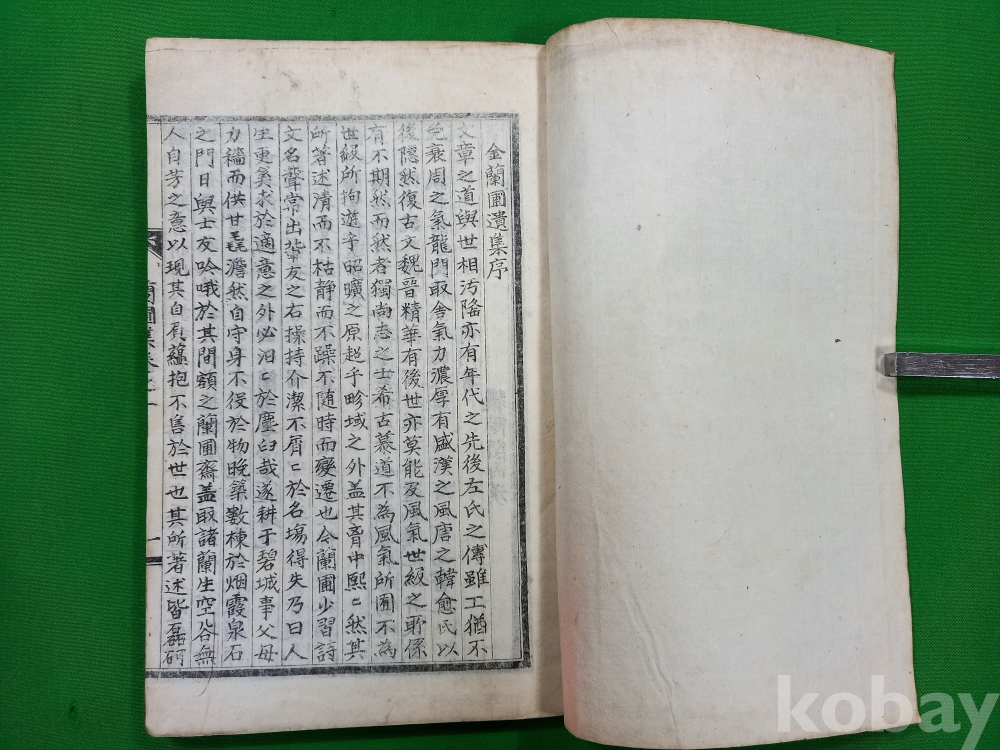 金蘭圃遺集序
文章之道與世相汚隆亦有年代之先後左氏之傳雖工猶不
免衰周之氣龍門取舍氣力濃厚有盛漢之風唐之韓愈氏以
後隱然復古文魏晉精華有後世亦莫能及風氣世級之所係
有不期然而然者獨尚志之士希古慕道不為風氣所囿不為
世級所拘遊乎昭曠之原超乎畛域之外盖其胷中熙〻然其
所著述清而不枯静而不躁不隨時而變遷也今蘭圃少習詩
文名聲常出輩友之右操持介潔不屑〻於名塲得失乃曰人
生更奚求於適意之外必汨〻於塵臼哉遂耕于碧城事父母
力穡而供甘毳澹然自守身不役於物晩築數棟於烟霞泉石
之門日與士友吟哦於其間額之蘭圃齋盖取諸蘭生空谷無
人自芳之意以現其自負蘊抱不售於世也其所著述皆磊砢
蘭圃集卷之一
一
kobay